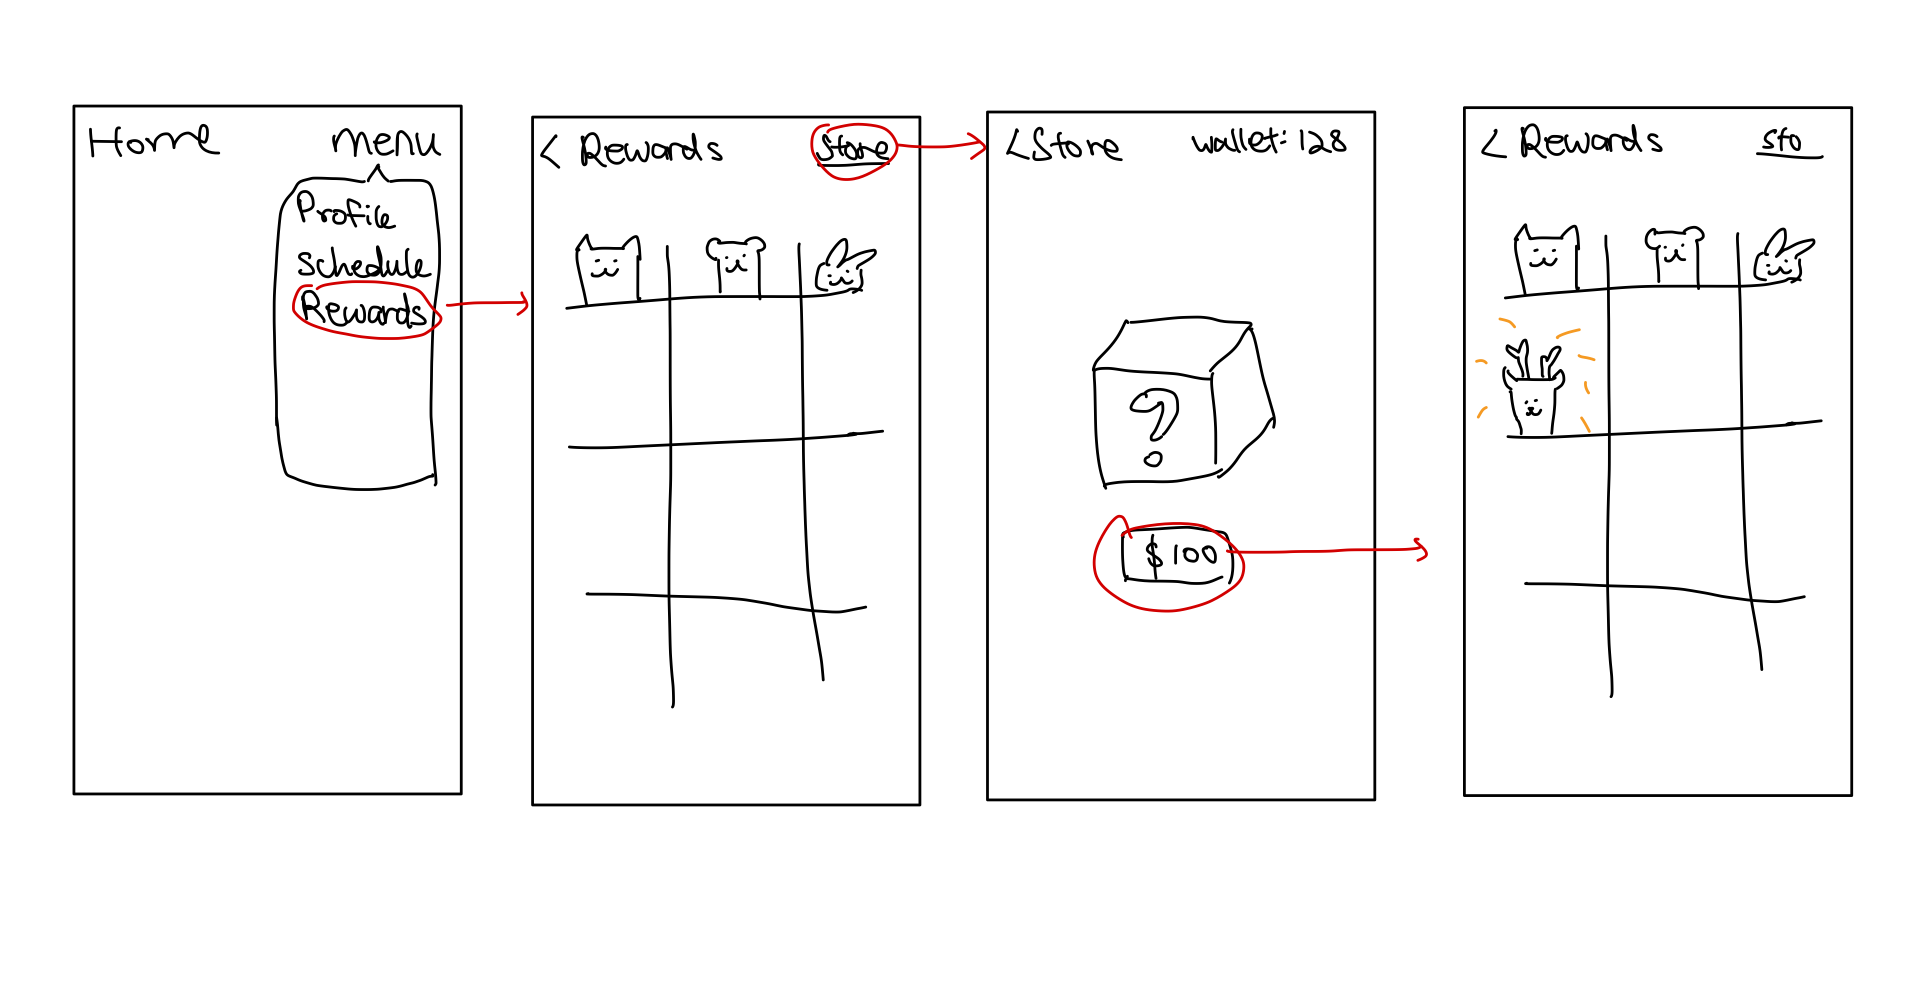 Home menu
Profile
schedule
Rewards
< Rewards Store
?
< Store wallet: 128
$100
< Rewards sto